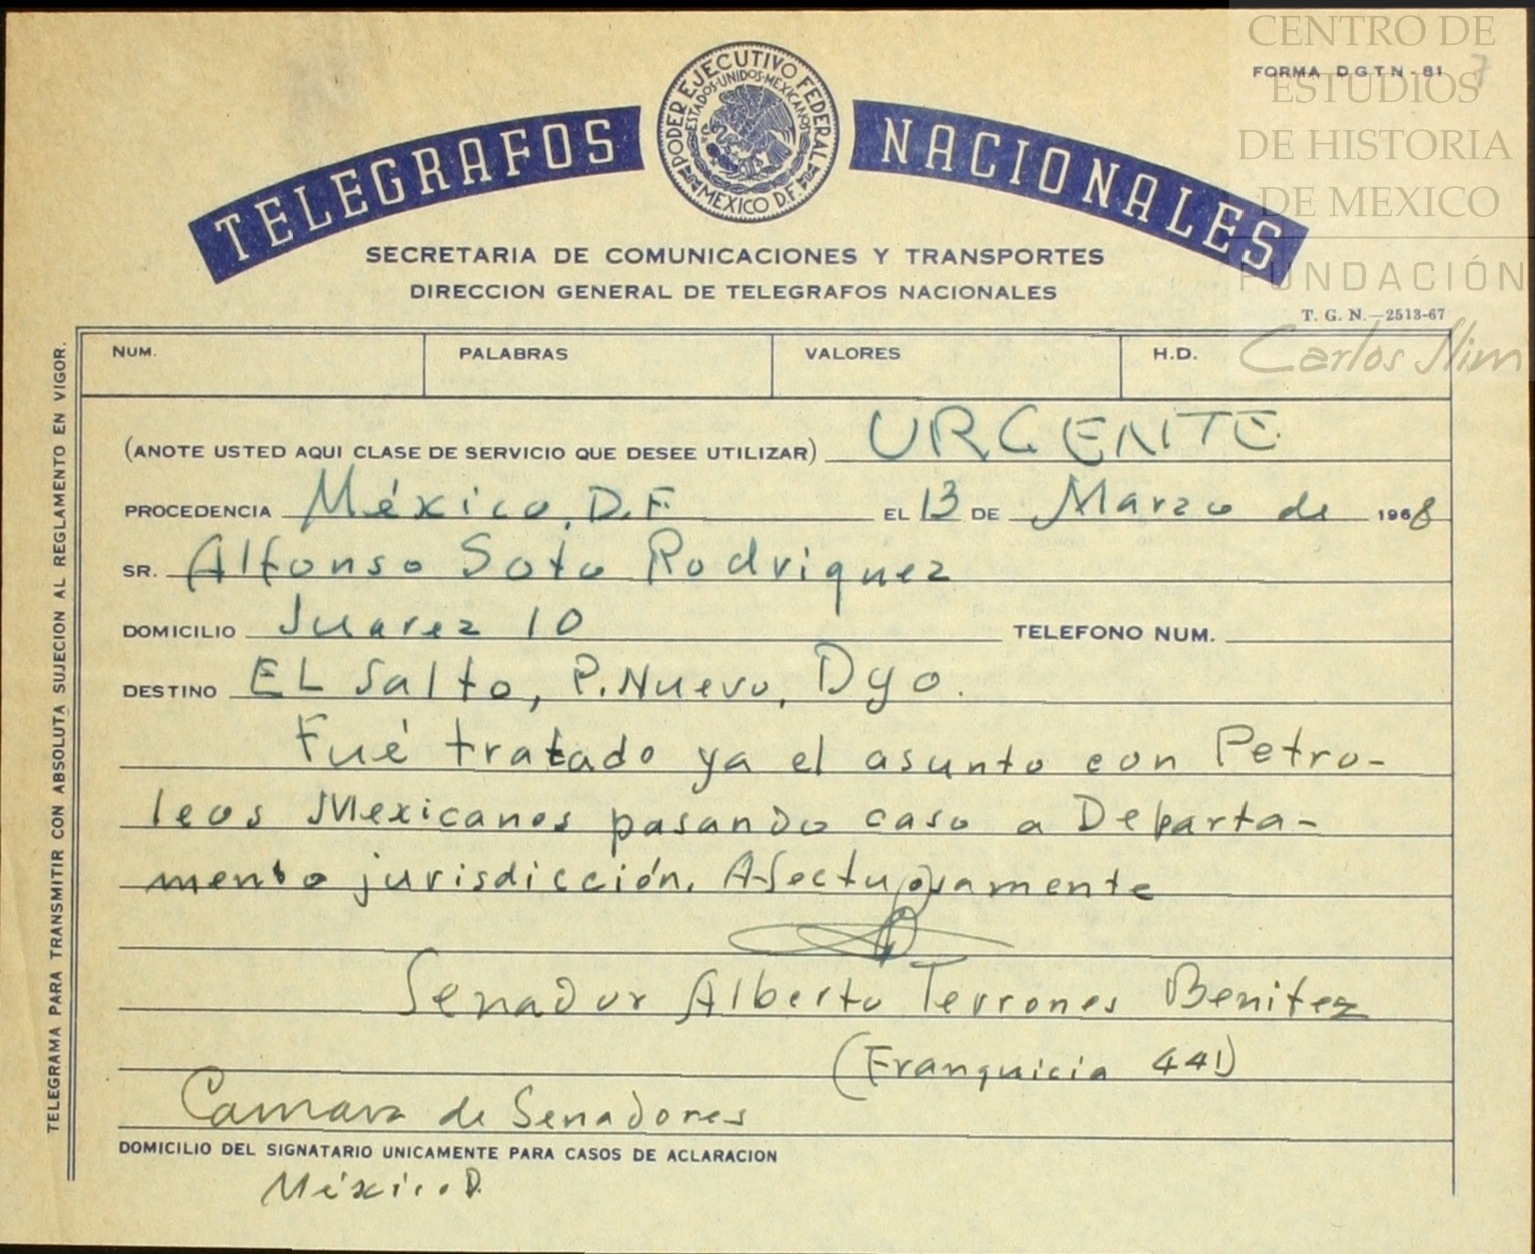 CENTRO DE
ESTUDIOS
DE HISTORIA
DE MEXICO
FUNDACIÓN
Carlos Slim
FORMA D G T N - 81 7
TELEGRAFOS NACIONALES
PODER EJECUTIVO FEDERAL
ESTADOS·UNIDOS·MEXICANOS
MEXICO D.F.
SECRETARIA DE COMUNICACIONES Y TRANSPORTES
DIRECCION GENERAL DE TELEGRAFOS NACIONALES
T. G. N.—2513-67
NUM. PALABRAS VALORES H.D.
(ANOTE USTED AQUI CLASE DE SERVICIO QUE DESEE UTILIZAR) URGENTE
PROCEDENCIA México, D.F. EL 13 DE Marzo de 1968
SR. Alfonso Soto Rodriguez
DOMICILIO Juarez 10 TELEFONO NUM.
DESTINO EL Salto, P. Nuevo, Dgo.
Fué tratado ya el asunto con Petro-
leos Mexicanos pasando caso a Departa-
mento jurisdicción. Afectuosamente
Senador Alberto Terrones Benitez
(Franquicia 441)
Camara de Senadores
DOMICILIO DEL SIGNATARIO UNICAMENTE PARA CASOS DE ACLARACION
México D.
TELEGRAMA PARA TRANSMITIR CON ABSOLUTA SUJECION AL REGLAMENTO EN VIGOR.